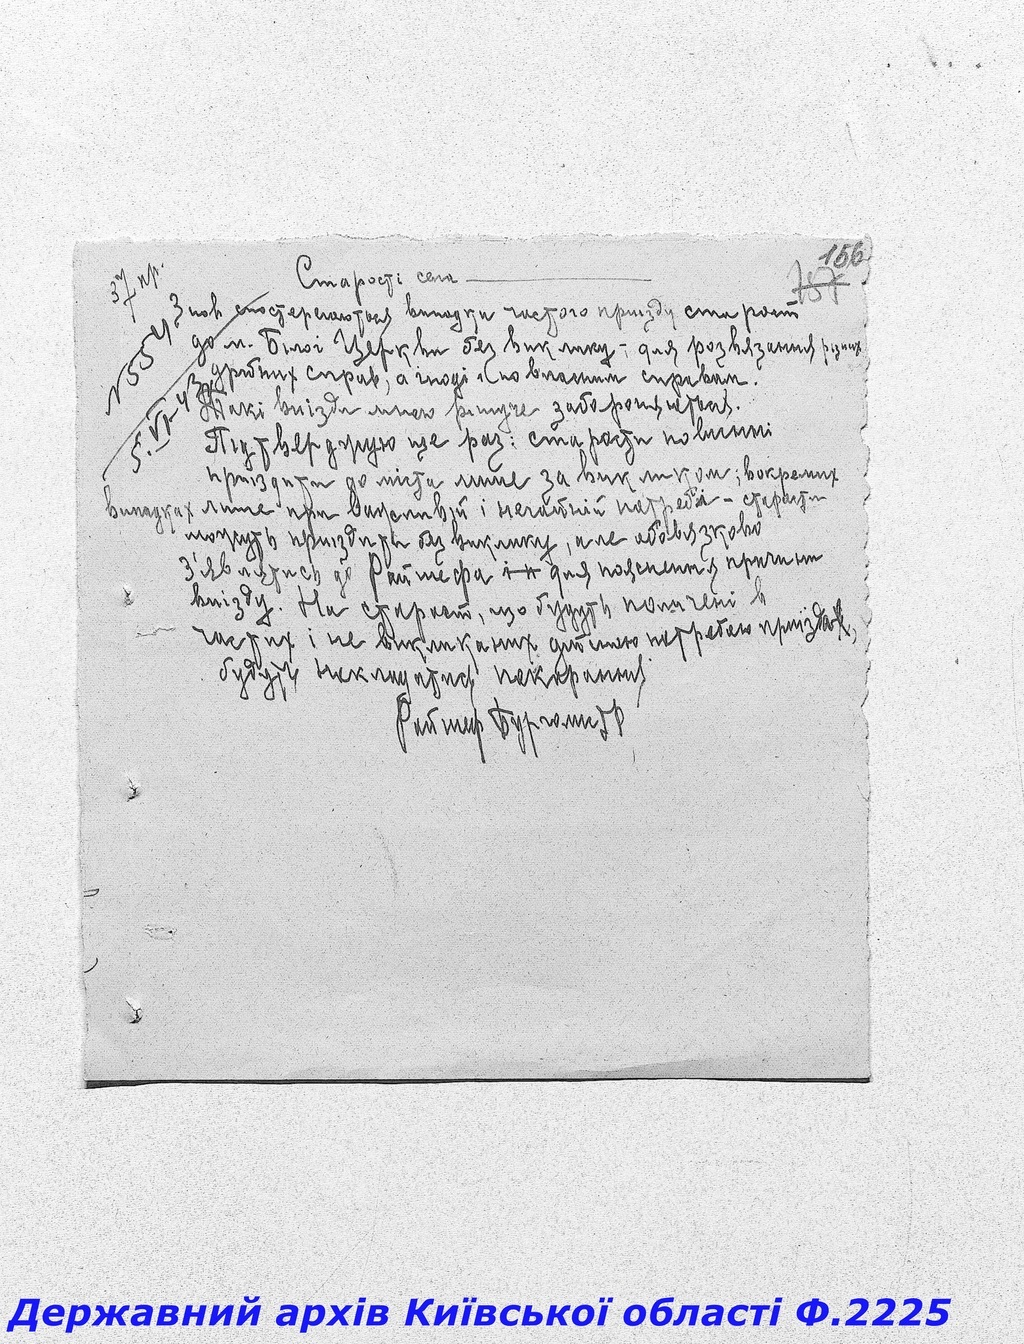 156
37 пр.
Старості села
№554
5.VI-43
Знов спостерегаються випадки частого приїзду старост
до м. Білої Церкви без виклику, для розвязання різних
дрібних справ, а іноді і по власним справам.
Такі виїзди мною рішуче забороняється.
Підтверджую ще раз: старости повинні
приїздити до міста лише за викликом; в окремих
випадках лише при важливій і негайній потребі - старости
можуть приїздити без виклику, але обовязково
з'являтись до Райшефа для пояснення причини
виїзду. На старост, що будуть помічені в
частих і не викликаних дійсною потребою приїздах,
будуть накладатись покарання
Райшеф Бургомістр
Державний архів Київської області Ф.2225